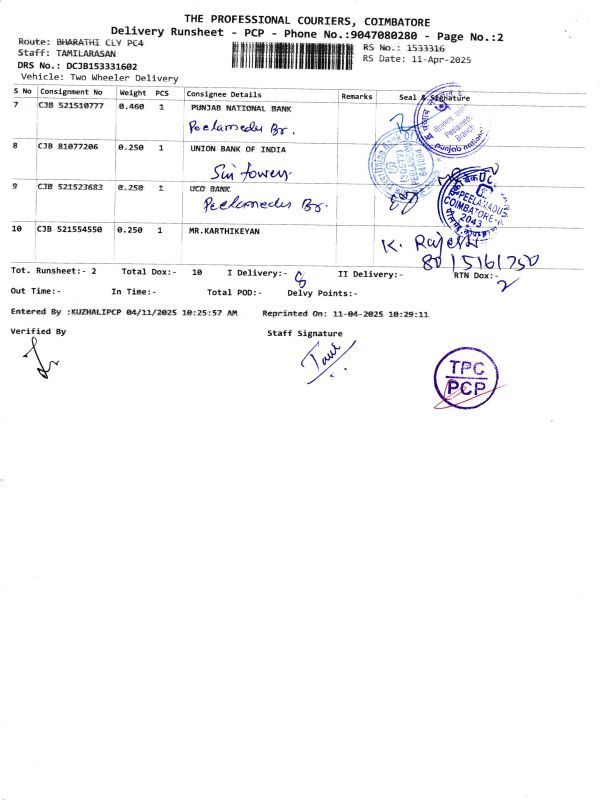 THE PROFESSIONAL COURIERS, COIMBATORE
Delivery Runsheet - PCP - Phone No.:9047080280 - Page No.:2
Route: BHARATHI CLY PC4
Staff: TAMILARASAN
DRS No.: DCJB153331602
Vehicle: Two Wheeler Delivery
RS No.: 1533316
RS Date: 11-Apr-2025
S No Consignment No Weight PCS Consignee Details Remarks Seal & Signature
7 CJB 521510777 0.460 1 PUNJAB NATIONAL BANK
Peelamedu Br.
8 CJB 81077206 0.250 1 UNION BANK OF INDIA
Sin towers
9 CJB 521523683 0.250 1 UCO BANK
Peelamedu Br.
PEELAMADU
COIMBATORE
2043
10 CJB 521554550 0.250 1 MR.KARTHIKEYAN
K. Rajesh
8015161750
Tot. Runsheet:- 2 Total Dox:- 10 I Delivery:- 8 II Delivery:- RTN Dox:- 2
Out Time:- In Time:- Total POD:- Delvy Points:-
Entered By :KUZHALIPCP 04/11/2025 10:25:57 AM Reprinted On: 11-04-2025 10:29:11
Verified By Staff Signature
TPC
PCP